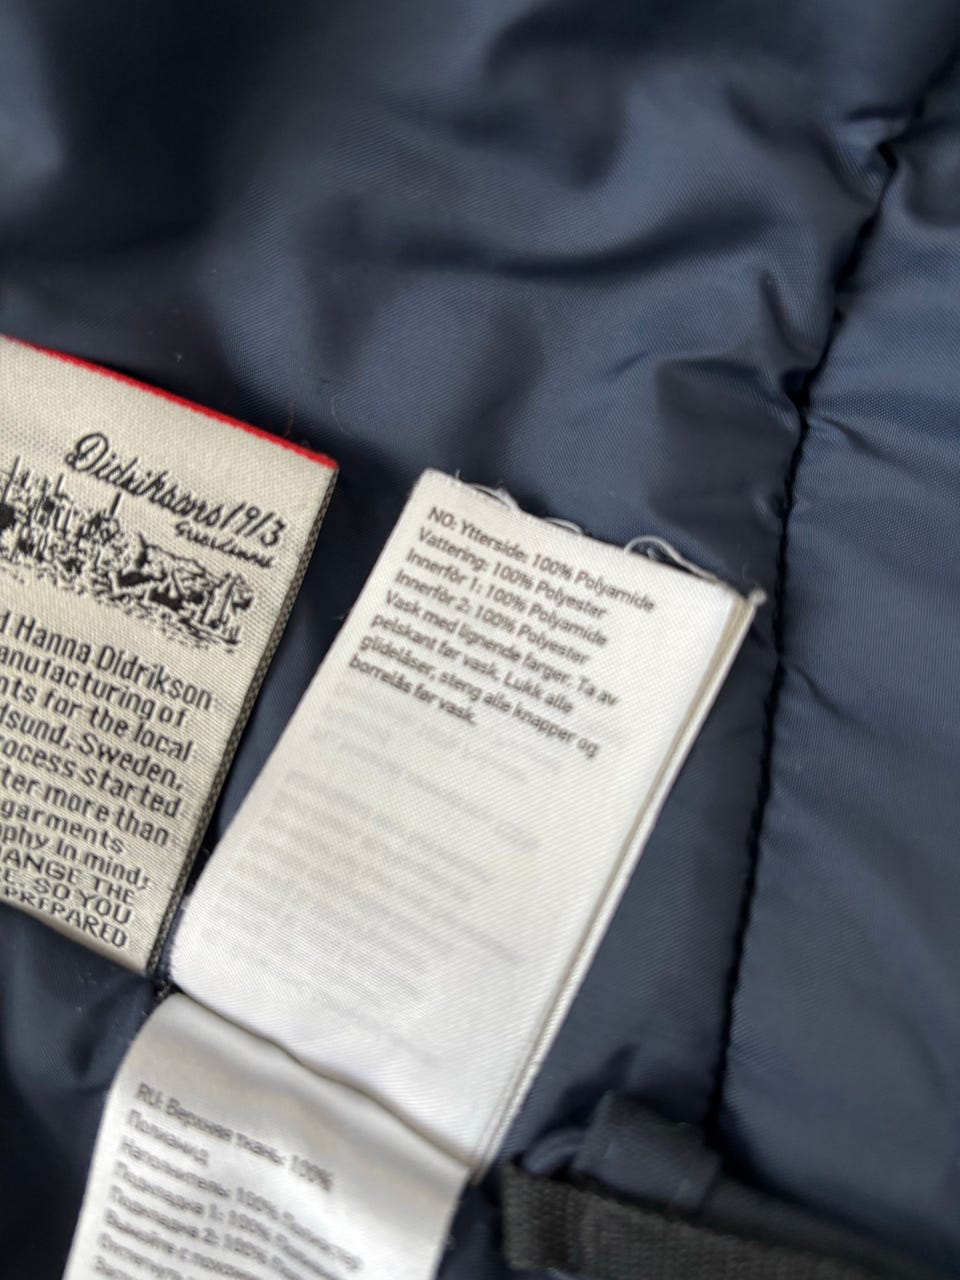 Didriksons1913
d Hanna Didrikson
anufacturing of
nts for the local
dsund, Sweden,
rocess started
ter more than
garments
phy in mind,
ANGE THE
E, SO YOU
PREPARED
NO: Ytterside: 100% Polyamide
Vattering: 100% Polyester
Innerfôr 1: 100% Polyamide
Innerfôr 2: 100% Polyester
Vask med lignende farger. Ta av
pelskant før vask. Lukk alle
glidelåser, steng alle knapper og
borrelås før vask.
RU: Верхняя ткань: 100%
Полиамид
Наполнитель: 100%
Подкладка 1: 100%
Подкладка 2: 100%